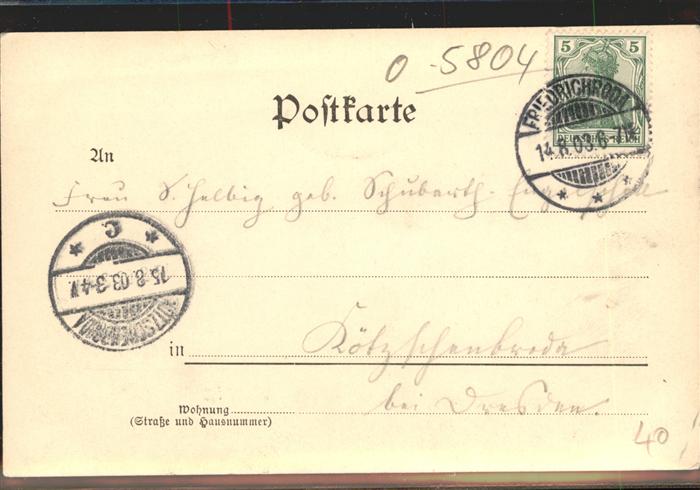 0-5804
5 5
DEUTSCHES REICH
FRIEDRICHRODA
14.8.03.6-7N.
Postkarte
An
Frau S. Helbig geb. Schubarth-
C.
15.8.03.3-4N.
KÖTZSCHENBRODA
in Kötzschenbroda
bei Dresden.
Wohnung
(Straße und Hausnummer)
40